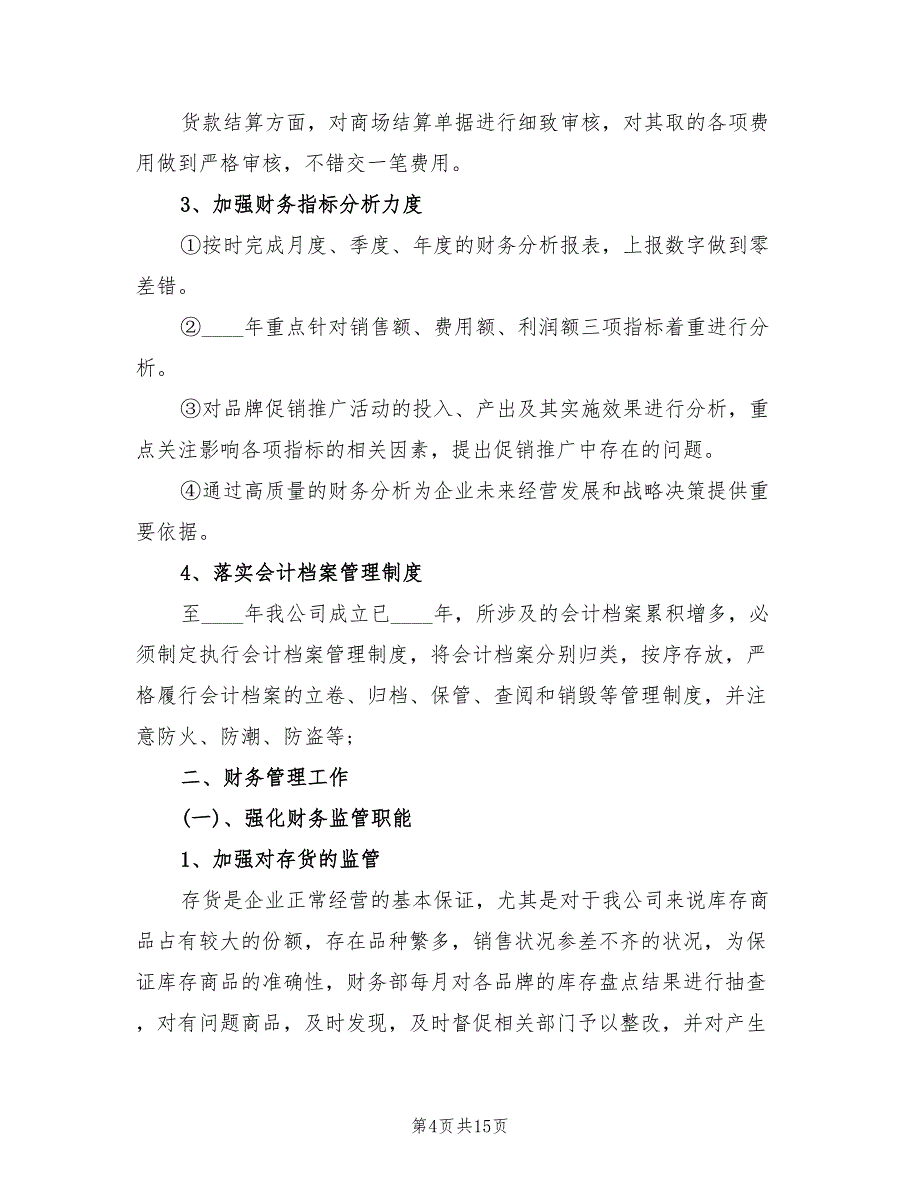 货款结算方面，对商场结算单据进行细致审核，对其取的各项费
用做到严格审核，不错交一笔费用。
3、加强财务指标分析力度
①按时完成月度、季度、年度的财务分析报表，上报数字做到零
差错。
②____年重点针对销售额、费用额、利润额三项指标着重进行分
析。
③对品牌促销推广活动的投入、产出及其实施效果进行分析，重
点关注影响各项指标的相关因素，提出促销推广中存在的问题。
④通过高质量的财务分析为企业未来经营发展和战略决策提供重
要依据。
4、落实会计档案管理制度
至____年我公司成立已____年，所涉及的会计档案累积增多，必
须制定执行会计档案管理制度，将会计档案分别归类，按序存放，严
格履行会计档案的立卷、归档、保管、查阅和销毁等管理制度，并注
意防火、防潮、防盗等;
二、财务管理工作
(一)、强化财务监管职能
1、加强对存货的监管
存货是企业正常经营的基本保证，尤其是对于我公司来说库存商
品占有较大的份额，存在品种繁多，销售状况参差不齐的状况，为保
证库存商品的准确性，财务部每月对各品牌的库存盘点结果进行抽查
，对有问题商品，及时发现，及时督促相关部门予以整改，并对产生
第4页共15页